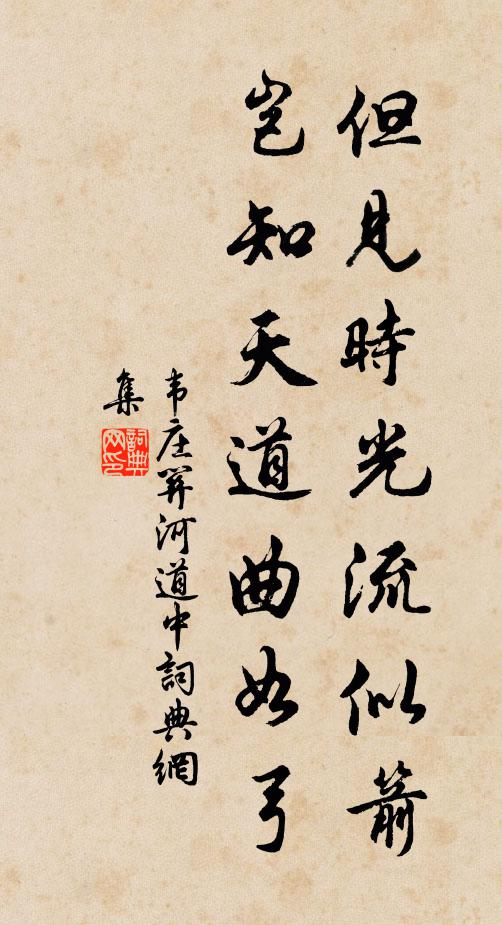 但見時光流似箭
豈知天道曲如弓
韦庄關河道中詞典網
集
詞典
网印